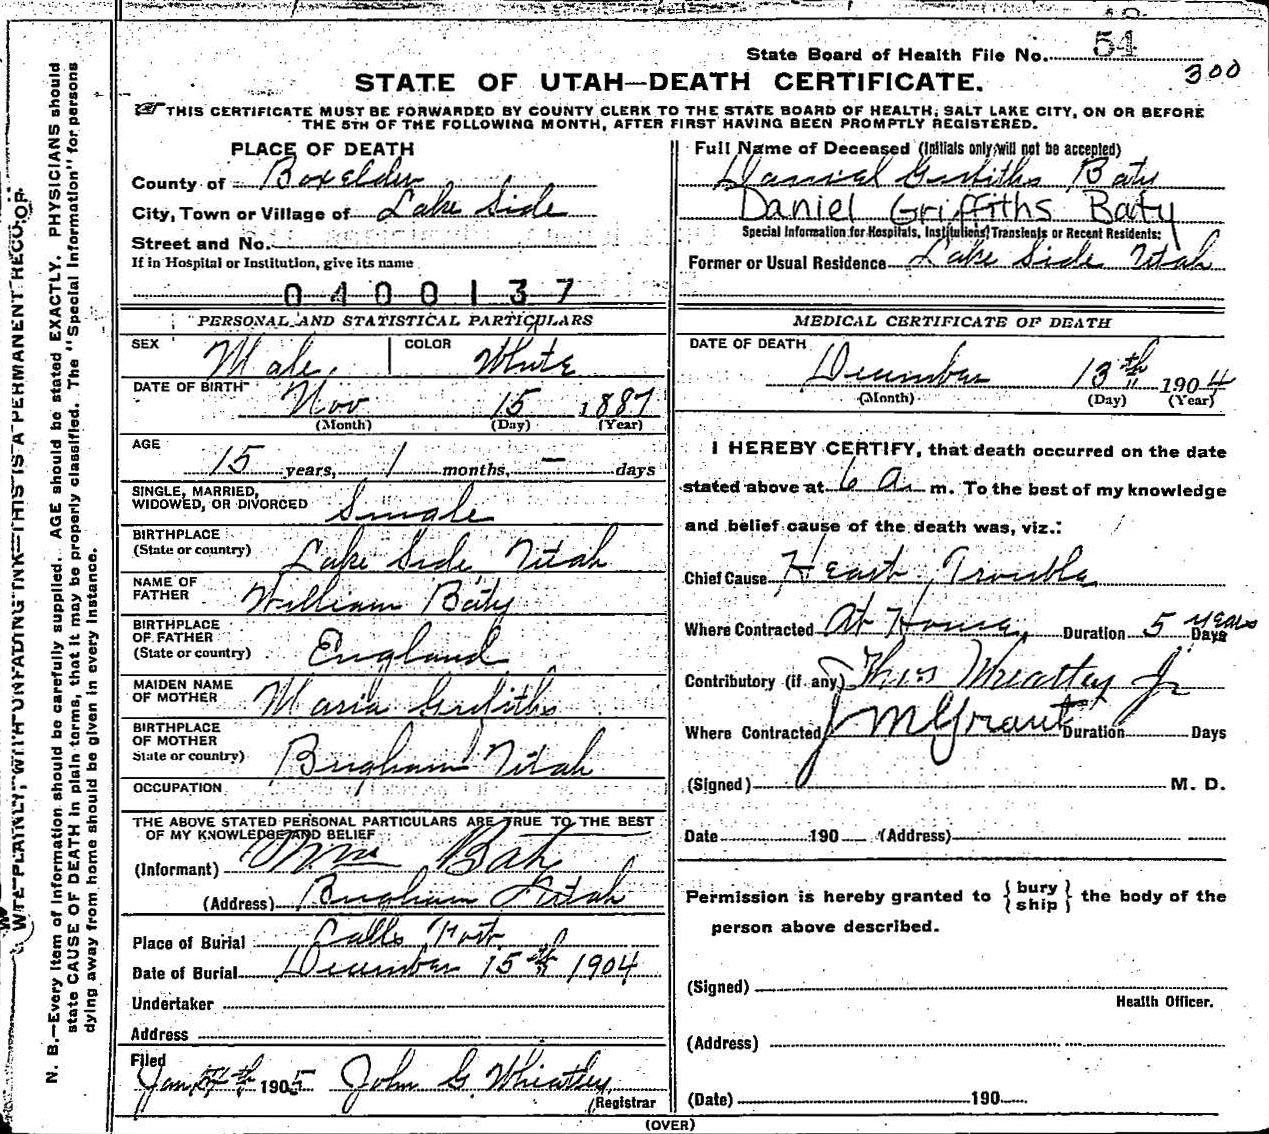 State Board of Health File No. 54
300
STATE OF UTAH—DEATH CERTIFICATE.
THIS CERTIFICATE MUST BE FORWARDED BY COUNTY CLERK TO THE STATE BOARD OF HEALTH, SALT LAKE CITY, ON OR BEFORE
THE 5TH OF THE FOLLOWING MONTH, AFTER FIRST HAVING BEEN PROMPTLY REGISTERED.
PLACE OF DEATH
County of Boxelder
City, Town or Village of Lake Side
Street and No.
If in Hospital or Institution, give its name
0400137
Full Name of Deceased (Initials only will not be accepted)
Daniel Griffiths Baty
Daniel Griffiths Baty
Special Information for Hospitals, Institutions, Transients or Recent Residents:
Former or Usual Residence Lake Side Utah
PERSONAL AND STATISTICAL PARTICULARS
SEX Male. COLOR White
DATE OF BIRTH Nov 15 1887
(Month) (Day) (Year)
AGE 15 years, 1 months, — days
SINGLE, MARRIED,
WIDOWED, OR DIVORCED Single
BIRTHPLACE
(State or country) Lake Side Utah
NAME OF
FATHER William Baty
BIRTHPLACE
OF FATHER
(State or country) England
MAIDEN NAME
OF MOTHER Maria Griffiths
BIRTHPLACE
OF MOTHER
State or country) Brigham Utah
OCCUPATION
THE ABOVE STATED PERSONAL PARTICULARS ARE TRUE TO THE BEST
OF MY KNOWLEDGE AND BELIEF
(Informant) Wm Baty
(Address) Brigham Utah
Place of Burial Calls Fort
Date of Burial December 15th 1904
Undertaker
Address
Filed
Jan 1905 John G Wheatley
Registrar
MEDICAL CERTIFICATE OF DEATH
DATE OF DEATH
December 13th 1904
(Month) (Day) (Year)
I HEREBY CERTIFY, that death occurred on the date
stated above at 6 A. m. To the best of my knowledge
and belief cause of the death was, viz.:
Chief Cause Heart Trouble
Where Contracted At Home, Duration 5 years Days
Contributory (if any) Thos Wheatley Jr
Where Contracted J M Grant Duration Days
(Signed) M. D.
Date 190 (Address)
Permission is hereby granted to {bury ship} the body of the
person above described.
(Signed)
Health Officer.
(Address)
(Date) 190
(OVER)
WRITE PLAINLY, WITH UNFADING INK—THIS IS A PERMANENT RECORD.
N. B.—Every item of information should be carefully supplied. AGE should be stated EXACTLY. PHYSICIANS should
state CAUSE OF DEATH in plain terms, that it may be properly classified. The "Special Information" for persons
dying away from home should be given in every instance.